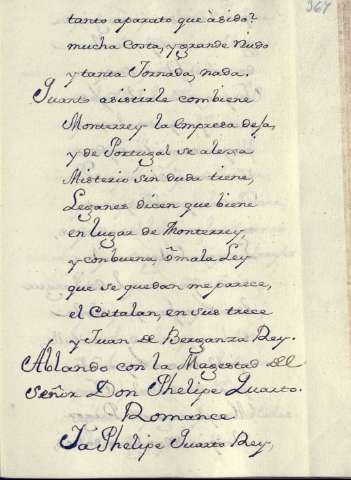 367
tanto aparato que à sido?
mucha Costa, y grande Ruido
y tanta Jornada, nada.
Quanto asistirle combiene
Monterrey la Empresa deja,
y de Portugal se alexa
Misterio sin duda tiene,
Leganes dicen que biene
en lugar de Monterrey,
y con buena, ò mala Ley
que se quedan me parece,
el Catalan, en sus trece
y Juan de Berganza Rey.
Ablando con la Magestad del
Señor Don Phelipe Quarto.
Romance
Ya Phelipe Quarto Rey,